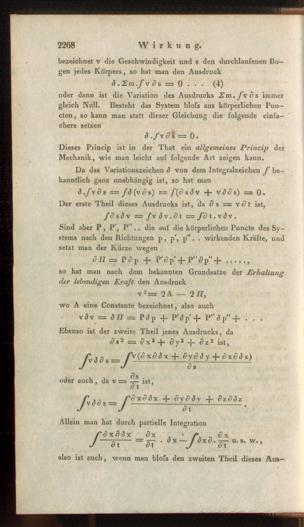 2268 Wirkung.
bezeichnet v die Geschwindigkeit und s den durchlaufenen Bo-
gen jedes Körpers, so hat man den Ausdruck
δ.Σm.∫v∂s = 0 . . . (4)
oder dann ist die Variation des Ausdrucks Σm.∫v∂s immer
gleich Null. Besteht das System bloſs aus körperlichen Punc-
ten, so kann man statt dieser Gleichung die folgende einfa-
chere setzen
δ.∫v∂s = 0.
Dieses Princip ist in der That ein allgemeines Princip der
Mechanik, wie man leicht auf folgende Art zeigen kann.
Da das Variationszeichen δ von dem Integralzeichen ∫ be-
kanntlich ganz unabhängig ist, so hat man
δ.∫v∂s = ∫δ(v∂s) = ∫(∂sδv + vδ∂s) = 0.
Der erste Theil dieses Ausdrucks ist, da ∂s = v∂t ist,
∫∂sδv = ∫vδv.∂t = ∫∂t.vδv.
Sind aber P, P', P''.. die auf die körperlichen Puncte des Sy-
stems nach den Richtungen p, p', p''.. wirkenden Kräfte, und
setzt man der Kürze wegen
∂Π = P∂p + P'∂p' + P''∂p'' + .....,
so hat man nach dem bekannten Grundsatze der Erhaltung
der lebendigen Kraft den Ausdruck
v² = 2A − 2Π,
wo A eine Constante bezeichnet, also auch
vδv = δΠ = Pδp + P'δp' + P''δp'' + . . .
Ebenso ist der zweite Theil jenes Ausdrucks, da
∂s² = ∂x² + ∂y² + ∂z² ist,
∫vδ∂s = ∫v(∂xδ∂x + ∂yδ∂y + ∂zδ∂z)/∂s
oder auch, da v = ∂s/∂t ist,
∫vδ∂s = ∫∂xδ∂x + ∂yδ∂y + ∂zδ∂z/∂t.
Allein man hat durch partielle Integration
∫∂xδ∂x/∂t = ∂x/∂t . δx − ∫δx∂.∂x/∂t u. s. w.,
also ist auch, wenn man bloſs den zweiten Theil dieses Aus-